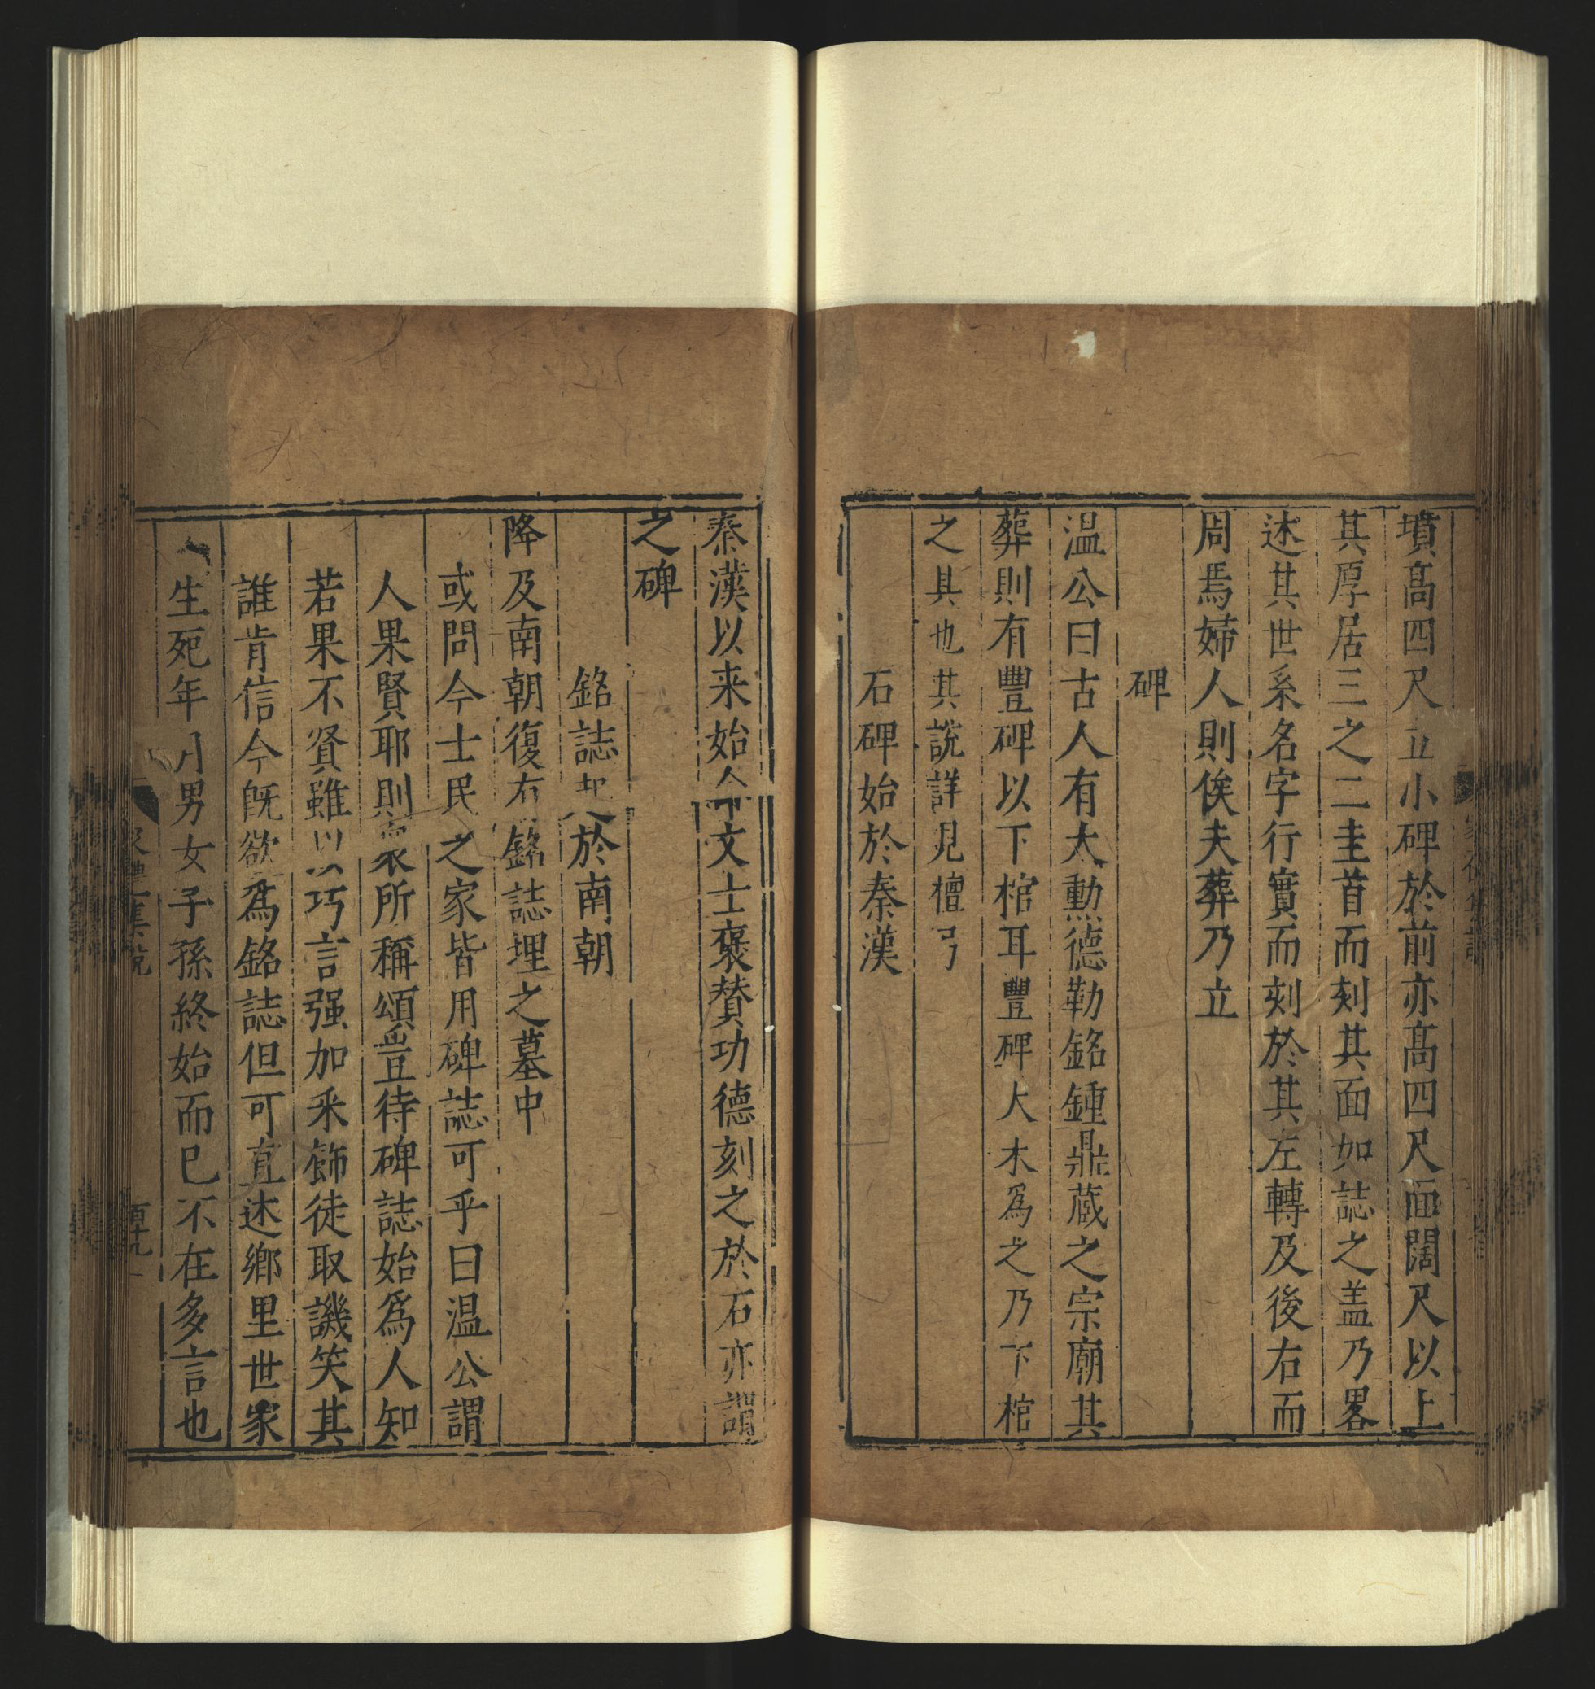 墳髙四尺立小碑於前亦髙四尺面闊尺以上
其厚居三之二圭首而刻其面如誌之盖乃畧
述其世系名字行實而刻於其左轉及後右而
周焉婦人則俟夫葬乃立
碑
温公曰古人有大勲德勒銘鍾鼎蔵之宗廟其
葬則有豐碑以下棺耳豐碑大木爲之乃下棺
之具也其說詳見檀弓
石碑始於秦漢
秦漢以来始命文士褒賛功德刻之於石亦謂
之碑
銘誌起於南朝
降及南朝復有銘誌埋之墓中
或問今士民之家皆用碑誌可乎曰温公謂
人果賢耶則衆所稱頌豈待碑誌始爲人知
若果不賢雖以巧言强加采飾徒取譏笑其
誰肯信今旣欲爲銘誌但可直述鄉里世家
生死年月男女子孫終始而巳不在多言也